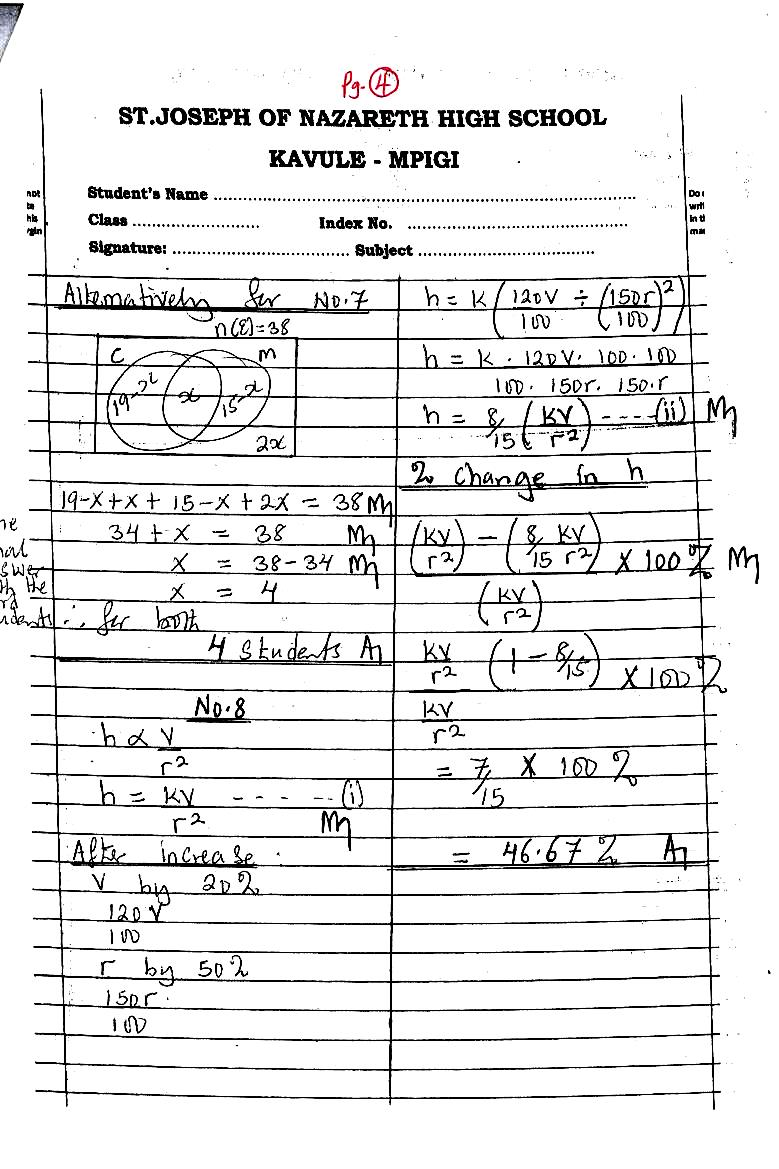 Pg. 4
ST.JOSEPH OF NAZARETH HIGH SCHOOL
KAVULE - MPIGI
Student's Name ........................................................................................
Class ........................ Index No. ..............................................
Signature: .................................. Subject ..................................
Alternatively for No.7
n(ε)=38
C M
19-x x 15-x
2x
19-x+x+15-x+2x = 38 M1
34+x = 38 M1
x = 38-34 M1
x = 4
∴ for both
4 students A1
No.8
h ∝ V/r²
h = KV/r² ------(i) M1
After increase
V by 20%
120V/100
r by 50%
150r/100
h = K(120V/100 ÷ (150r/100)²)
h = K · 120V · 100 · 100
100 · 150r · 150·r
h = 8/15 (KV/r²) ----(ii) M1
% change in h
(KV/r²) - (8/15 KV/r²) X 100% M1
(KV/r²)
KV/r² (1 - 8/15) X 100%
KV/r²
= 7/15 X 100%
= 46.67% A1